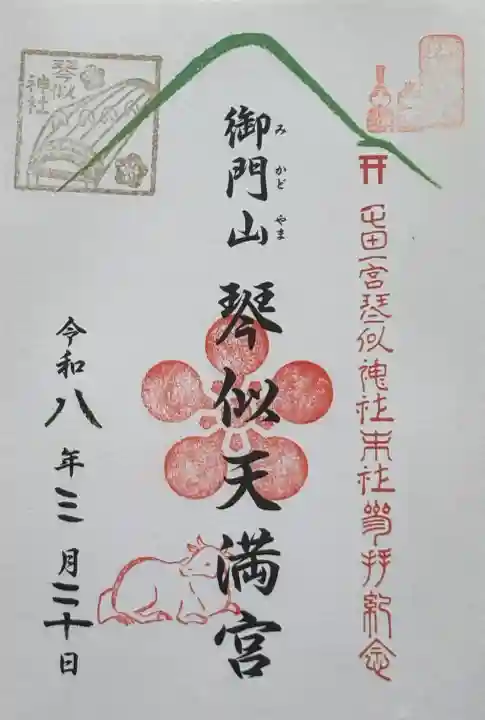 屯田一宮琴似神社末社参拝紀念
御門山 琴似天満宮
み かど やま
令和八年三月二十日
琴似
神社